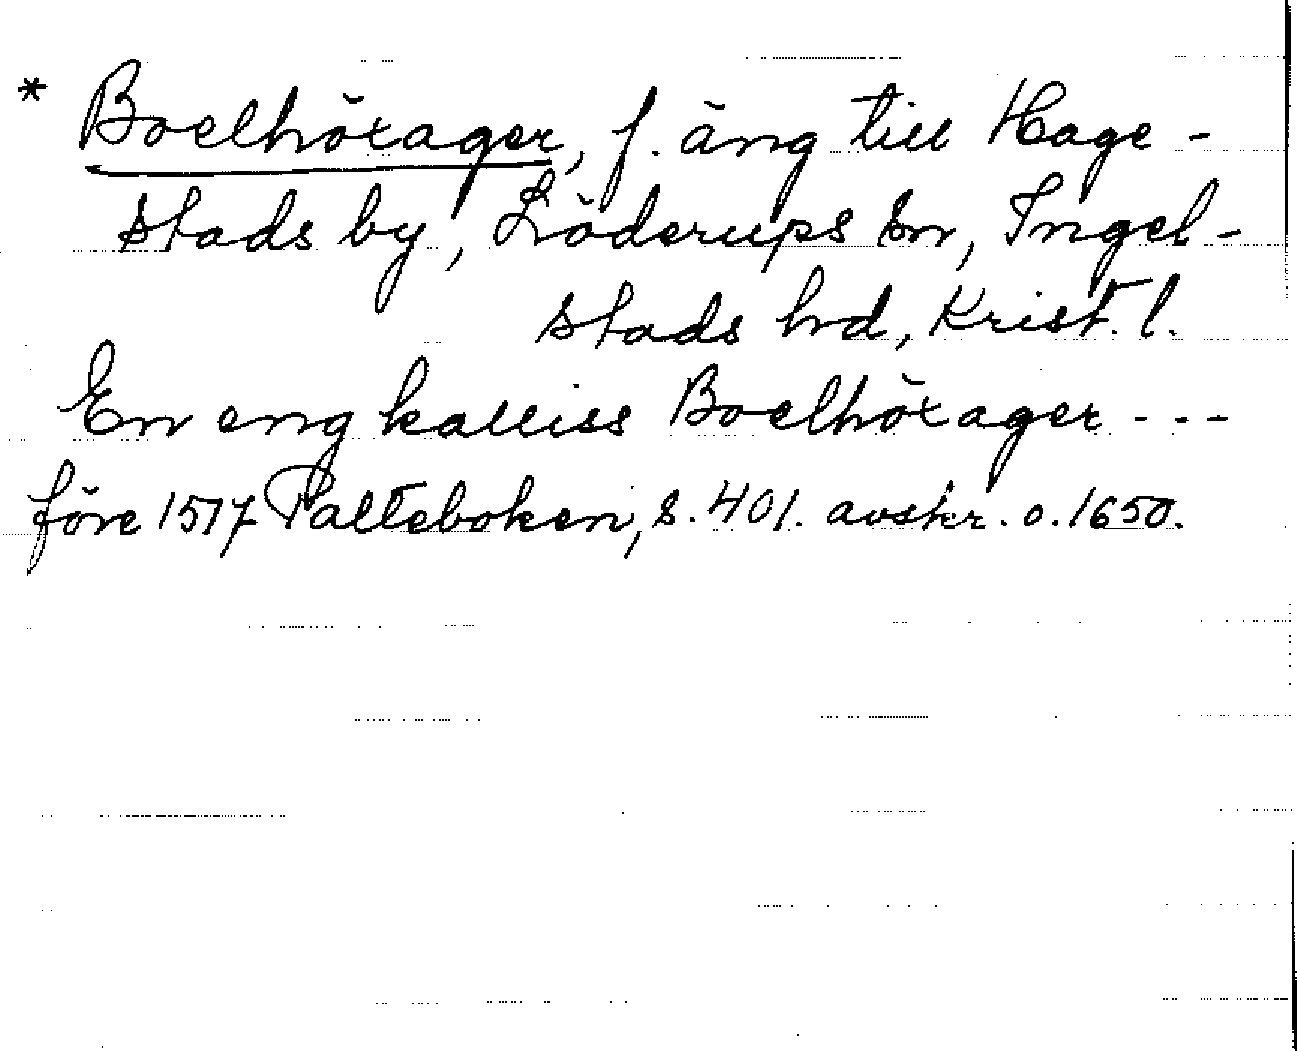 * Boelhöxager, f. äng till Hage-
stads by, Löderups sn, Ingel-
stads hrd, Krist. l.
En eng kalliss Boelhöxager - - -
före 1517 Palteboken, s. 401. avskr. o. 1650.